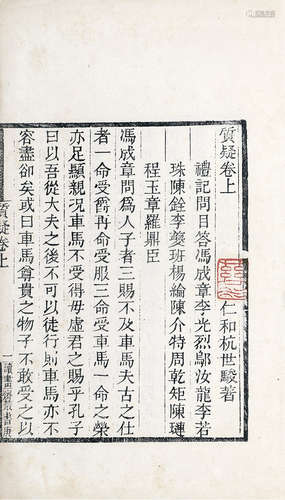 質疑卷上
仁和杭世駿著
禮記問目答馮成章李光烈鄢汝龍李若
珠陳銓李龑班楊綸陳介特周乾矩陳璉
程玉章羅鼎臣
馮成章問為人子者三賜不及車馬夫古之仕
者一命受爵再命受服三命受車馬一命之榮
亦足顯親況車馬不受得毋虛君之賜乎孔子
曰以吾從大夫之後不可以徒行則車馬亦不
容盡卻矣或曰車馬尊貴之物子不敢受之以
質疑卷上
一
讀畫齋叢書庚